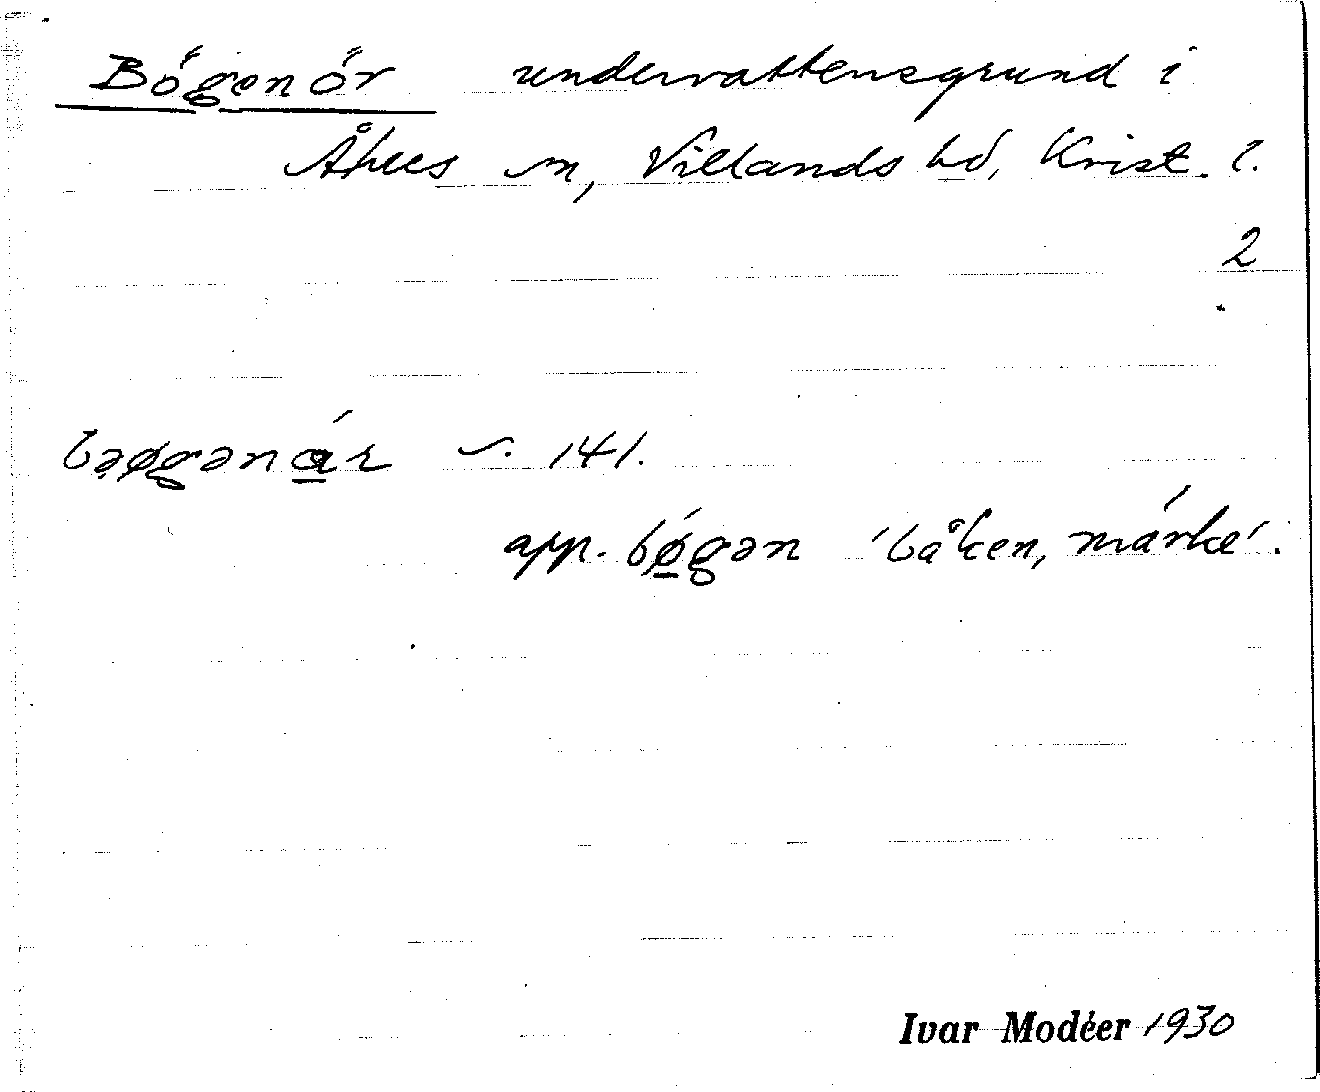 Bögenör undervattensgrund i
Åhus sn, Villands hd, Krist. l.
2
bəøgənár s. 141.
app. bǿgən 'båken, märke'.
Ivar Modéer 1930